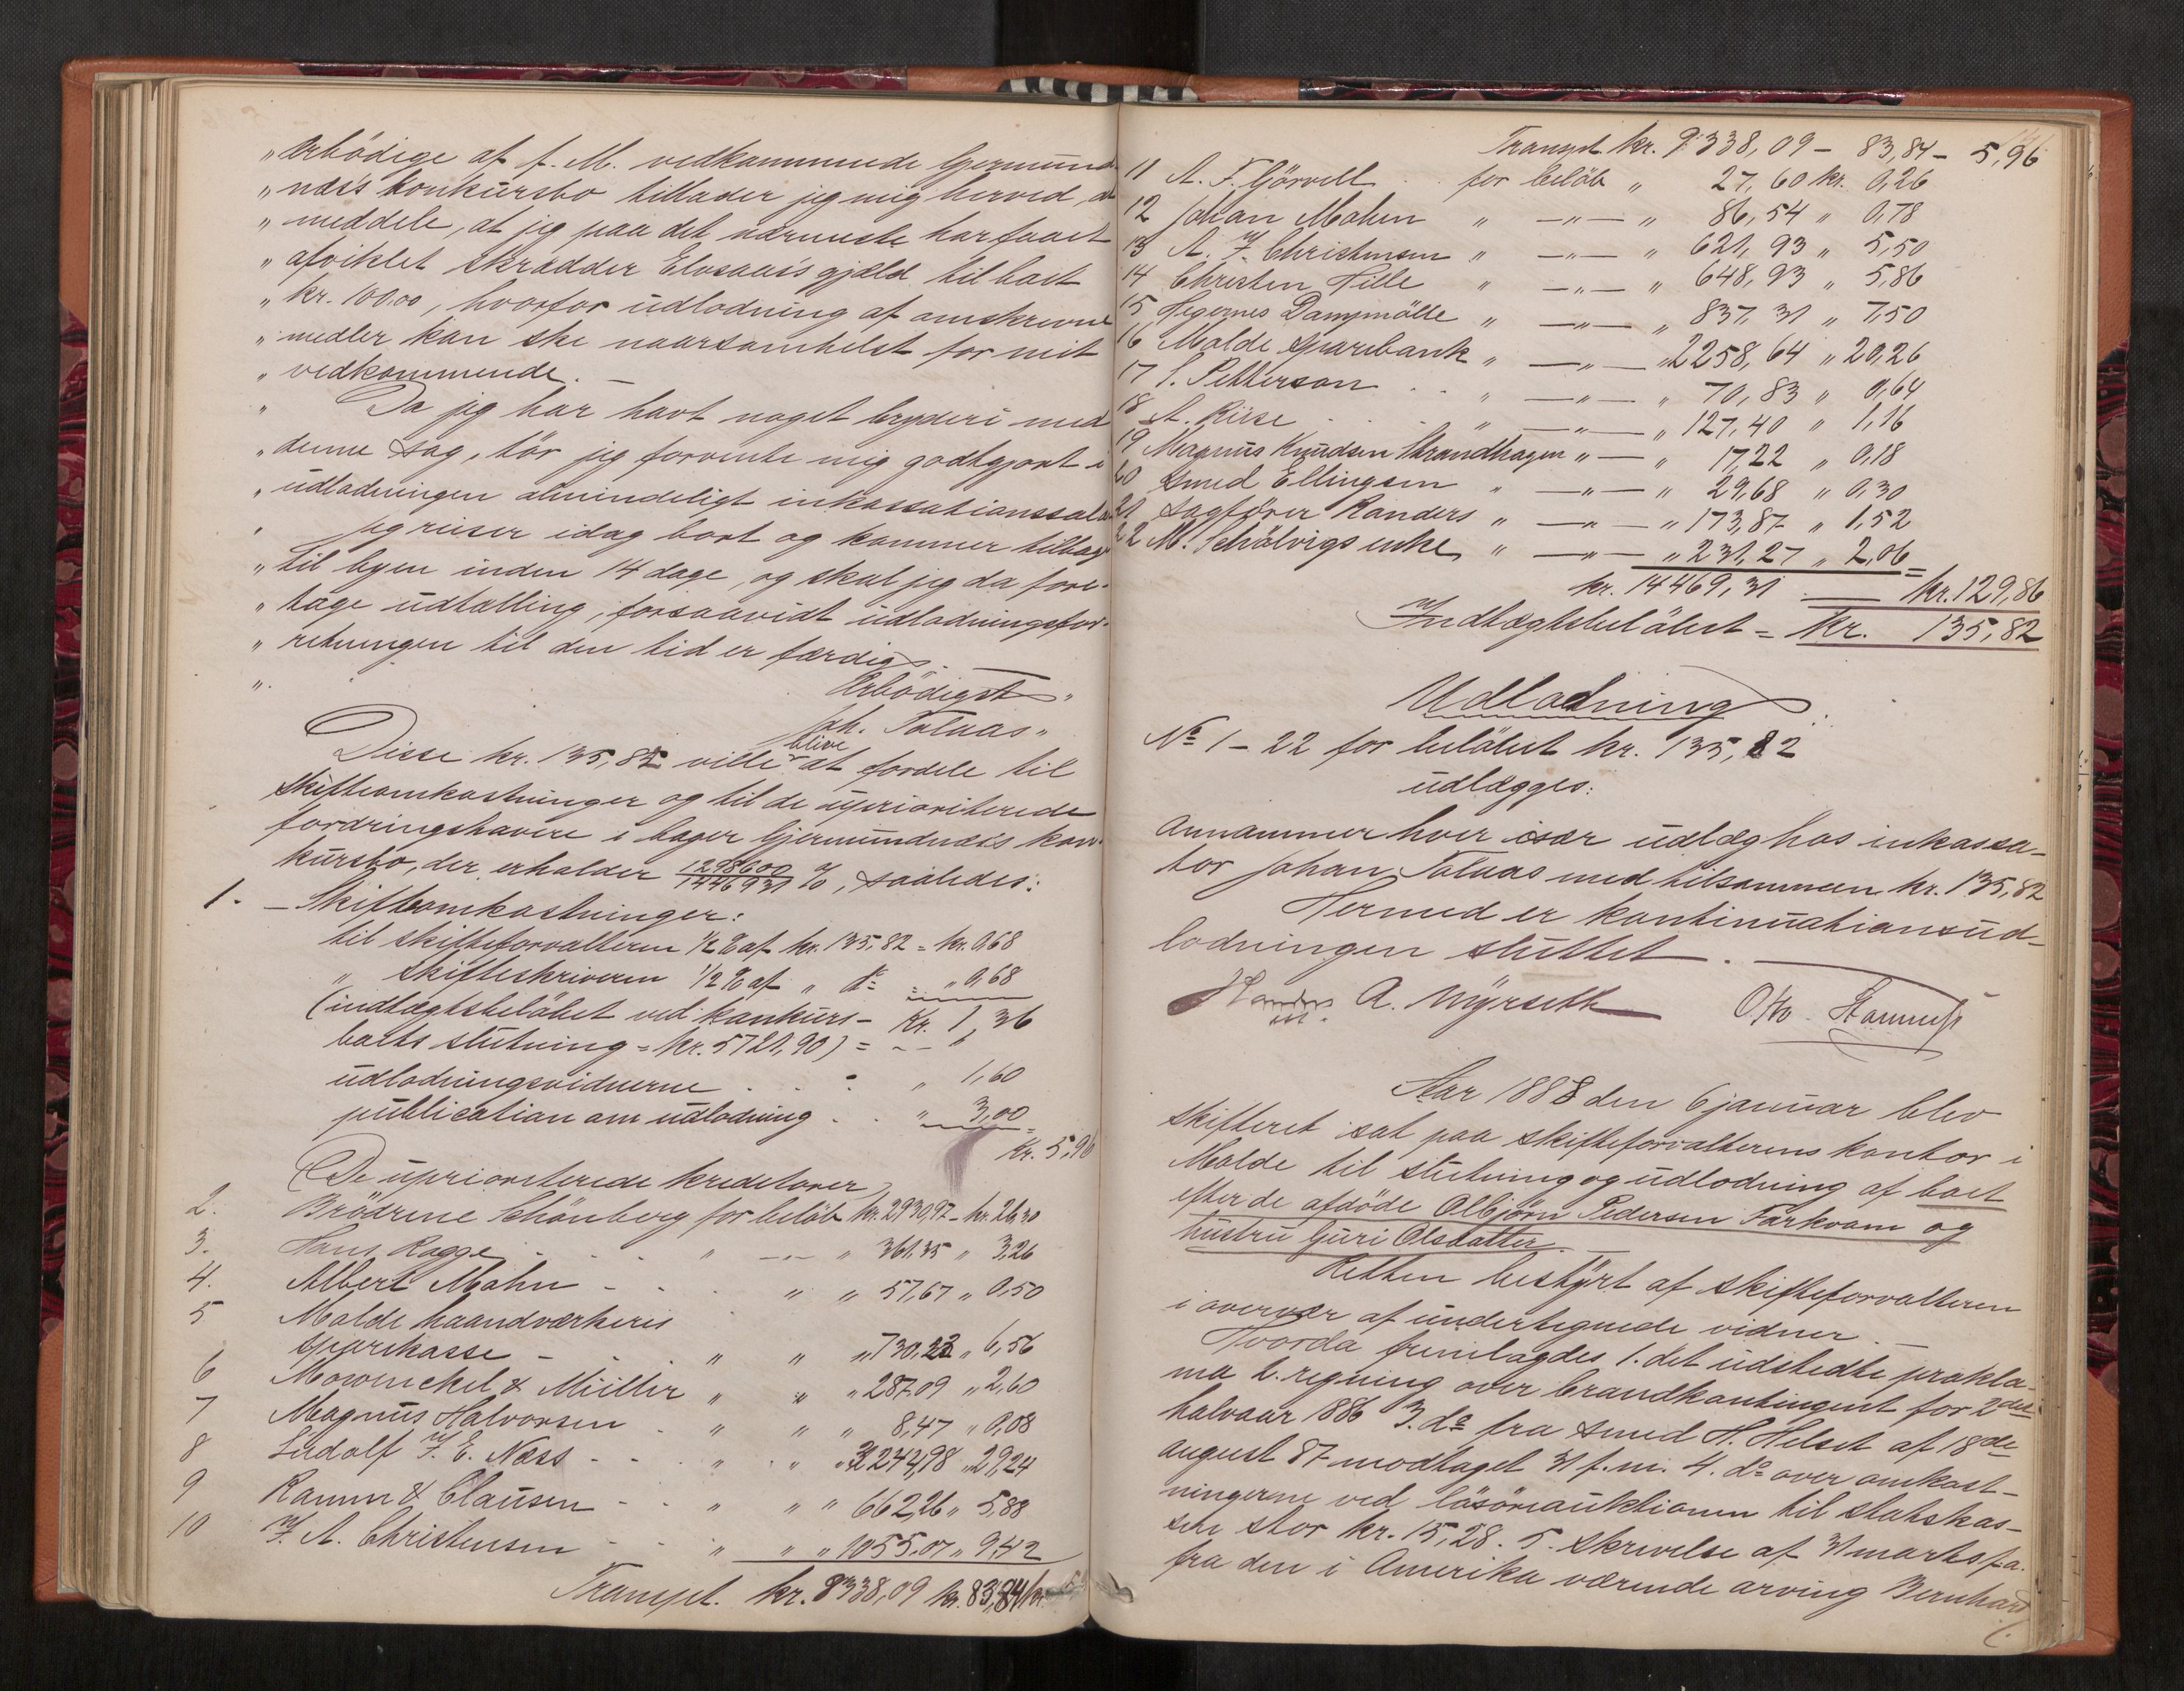 „ ærbödige af f. M. vedkommende Gjermund-
„ næs's konkursbo tillader jeg mig herved, at
„ meddele, at jeg paa det nærmeste har faaet
„ afviklet skrædder Elvsaas's gjæld til boet
„ kr. 100.00, hvorfor udlodning af omskrevne
„ midler kan ske naarsomhelst for mit
„ vedkommende. —
„ Da jeg har havt noget bryderi med
„ denne sag, tör jeg forvente mig godtgjort i
„ udlodningen almindeligt inkassationssalær
„ jeg reiser idag bort og kommer tilbage
„ til byen inden 14 dage, og skal jeg da fore-
„ tage udtælling, forsaavidt udlodningsfor-
„ retningen til den tid er færdig. —
„ Ærbödigst „
Joh. Tolaas „
Disse kr. 135,82 ville blive at fordele til
skifteomkostninger og til de uprioriterede
fordringshavere i bager Gjermundnæs's kon-
kursbo, der erholder 1298600/1446931 %, saaledes:
1. — Skifteomkostninger:
til skifteforvalteren ½ % af kr. 135,82 = kr. 0,68
„ skifteskriveren ½ % af „ do = „ 0,68
(indtægtsbelöbet ved konkurs- Kr. 1,36
boets slutning = kr. 5721,90) = - -
udlodningsvidnerne . . . „ 1,60
publication om udlodning . . „ 3,00
Kr. 5,96
De uprioriterede kreditorer
2. Brödrene Schönberg for belöb kr. 2930,97 - kr. 26,30
3. Hans Ragge - - „ -„- „ 361.35 „ 3,26
4. Albert Mohn - - . „ „ 57,67 „ 0,50
5 Molde haandværkeris
sparekasse - . . „ „ „ 730,23 „ 6,56
6 Mowinckel & Müller „ „ „ 287.09 „ 2,60
7 Magnus Halvorsen . „ „ „ 8,47 „ 0,08
8 Ludolf J. E. Næss - - „ „ „ 3244,98 „ 29,24
9 Ramm & Clausen - - „ „ „ 662,26 „ 5,88
10 J. A. Christensen - - „ „ „ 1055,07 „ 9,42
Transpt. kr. 9338,09 kr. 83,84
Transpt. kr. 9338,09 - 83,84 - 5,96
11 A. F. Görvell . . for belöb „ 27,60 kr. 0,26
12 Johan Mohn „ —„— „ 86,54 „ 0,78
13 A. J. Christensen „ —„— „ 621,93 „ 5,50
14 Christen Hille „ —„— „ 648,93 „ 5,86
15 Hegernes Dampmölle „ —„— „ 837,31 „ 7,50
16 Molde Sparebank „ —„— „ 2258,64 „ 20,26
17 S. Petterson . . „ —„— „ 70,83 „ 0,64
18 A. Risse . . „ —„— „ 127,40 „ 1,16
19 Magnus Knudsen Strandhagen „ — „ 17,22 „ 0,18
20 Smed Ellingsen „ —„— „ 29,68 „ 0,30
21 Sagförer Randers „ —„— „ 173,87 „ 1,52
22 M. Schölvigs enke „ —„— „ 231,27 „ 2,06 =
kr. 14469,31 — kr. 129,86
Indtægtsbelöbet = Kr. 135,82
Udlodning
No 1 - 22 for belöbet kr. 135,82
udlægges:
annammer hver især udlæg hos inkassa-
tor Johan Tolaas med tilsammen kr. 135,82
Hermed er kontinuationsud-
lodningen sluttet. —
Randers A. Myrseth
Aar 1888 den 6 januar blev
skifteret sat paa skifteforvalterens kontor i
Molde til slutning og udlodning af boet
efter de afdöde Olbjörn Pedersen Farkvam og
hustru Guri Olsdatter. —
Retten bestyrt af skifteforvalteren
i overvær af undertegnede vidner. —
Hvorda fremlagdes 1. det udstedte prokla-
ma 2. regning over brandkontingent for 2det
halvaar 1886 3. do fra smed H. Helset af 18de
august 87 modtaget 31 f. m. 4. do over omkost-
ningerne ved lösöreauktionen til statskas-
sen stor kr. 15,28. 5. skrivelse af 31 marts f. a.
fra den i Amerika værende arving Bernhard